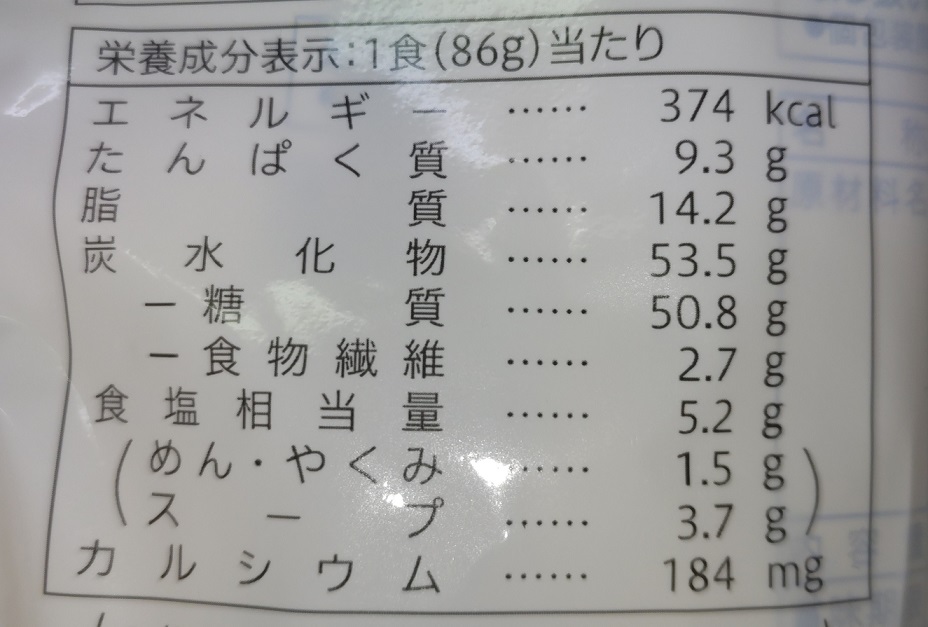 栄養成分表示:1食(86g)当たり
エネルギー …… 374 kcal
たんぱく質 …… 9.3 g
脂質 …… 14.2 g
炭水化物 …… 53.5 g
－糖質 …… 50.8 g
－食物繊維 …… 2.7 g
食塩相当量 …… 5.2 g
(めん・やくみ …… 1.5 g)
(スープ …… 3.7 g)
カルシウム …… 184 mg
名称
原材料名